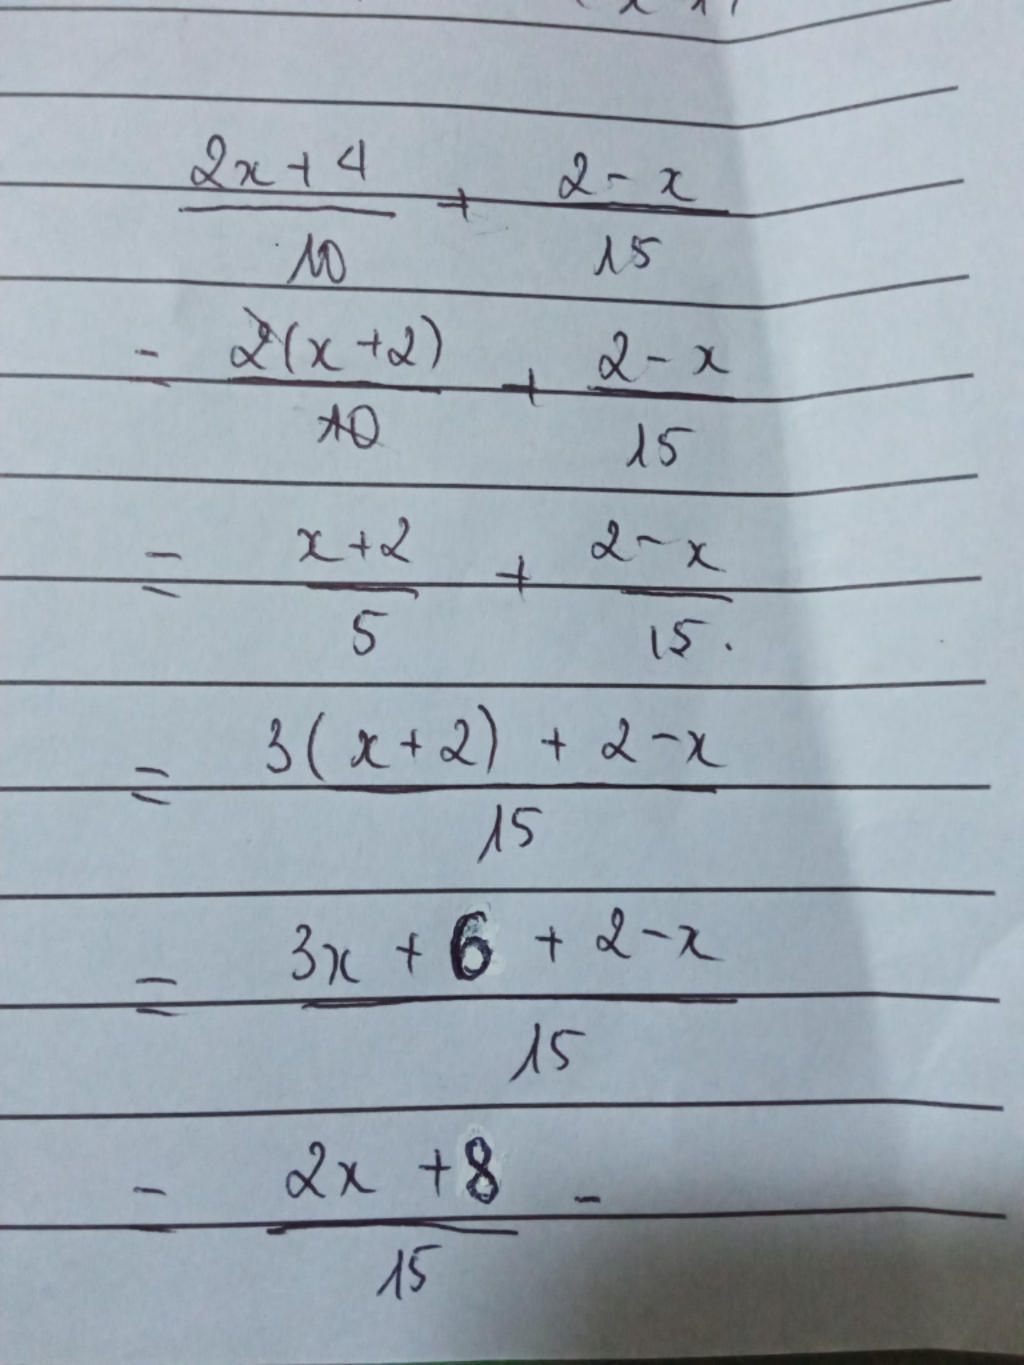 2x + 4 / 10 + 2 - x / 15
= 2(x + 2) / 10 + 2 - x / 15
= x + 2 / 5 + 2 - x / 15.
= 3(x + 2) + 2 - x / 15
= 3x + 6 + 2 - x / 15
= 2x + 8 / 15 -